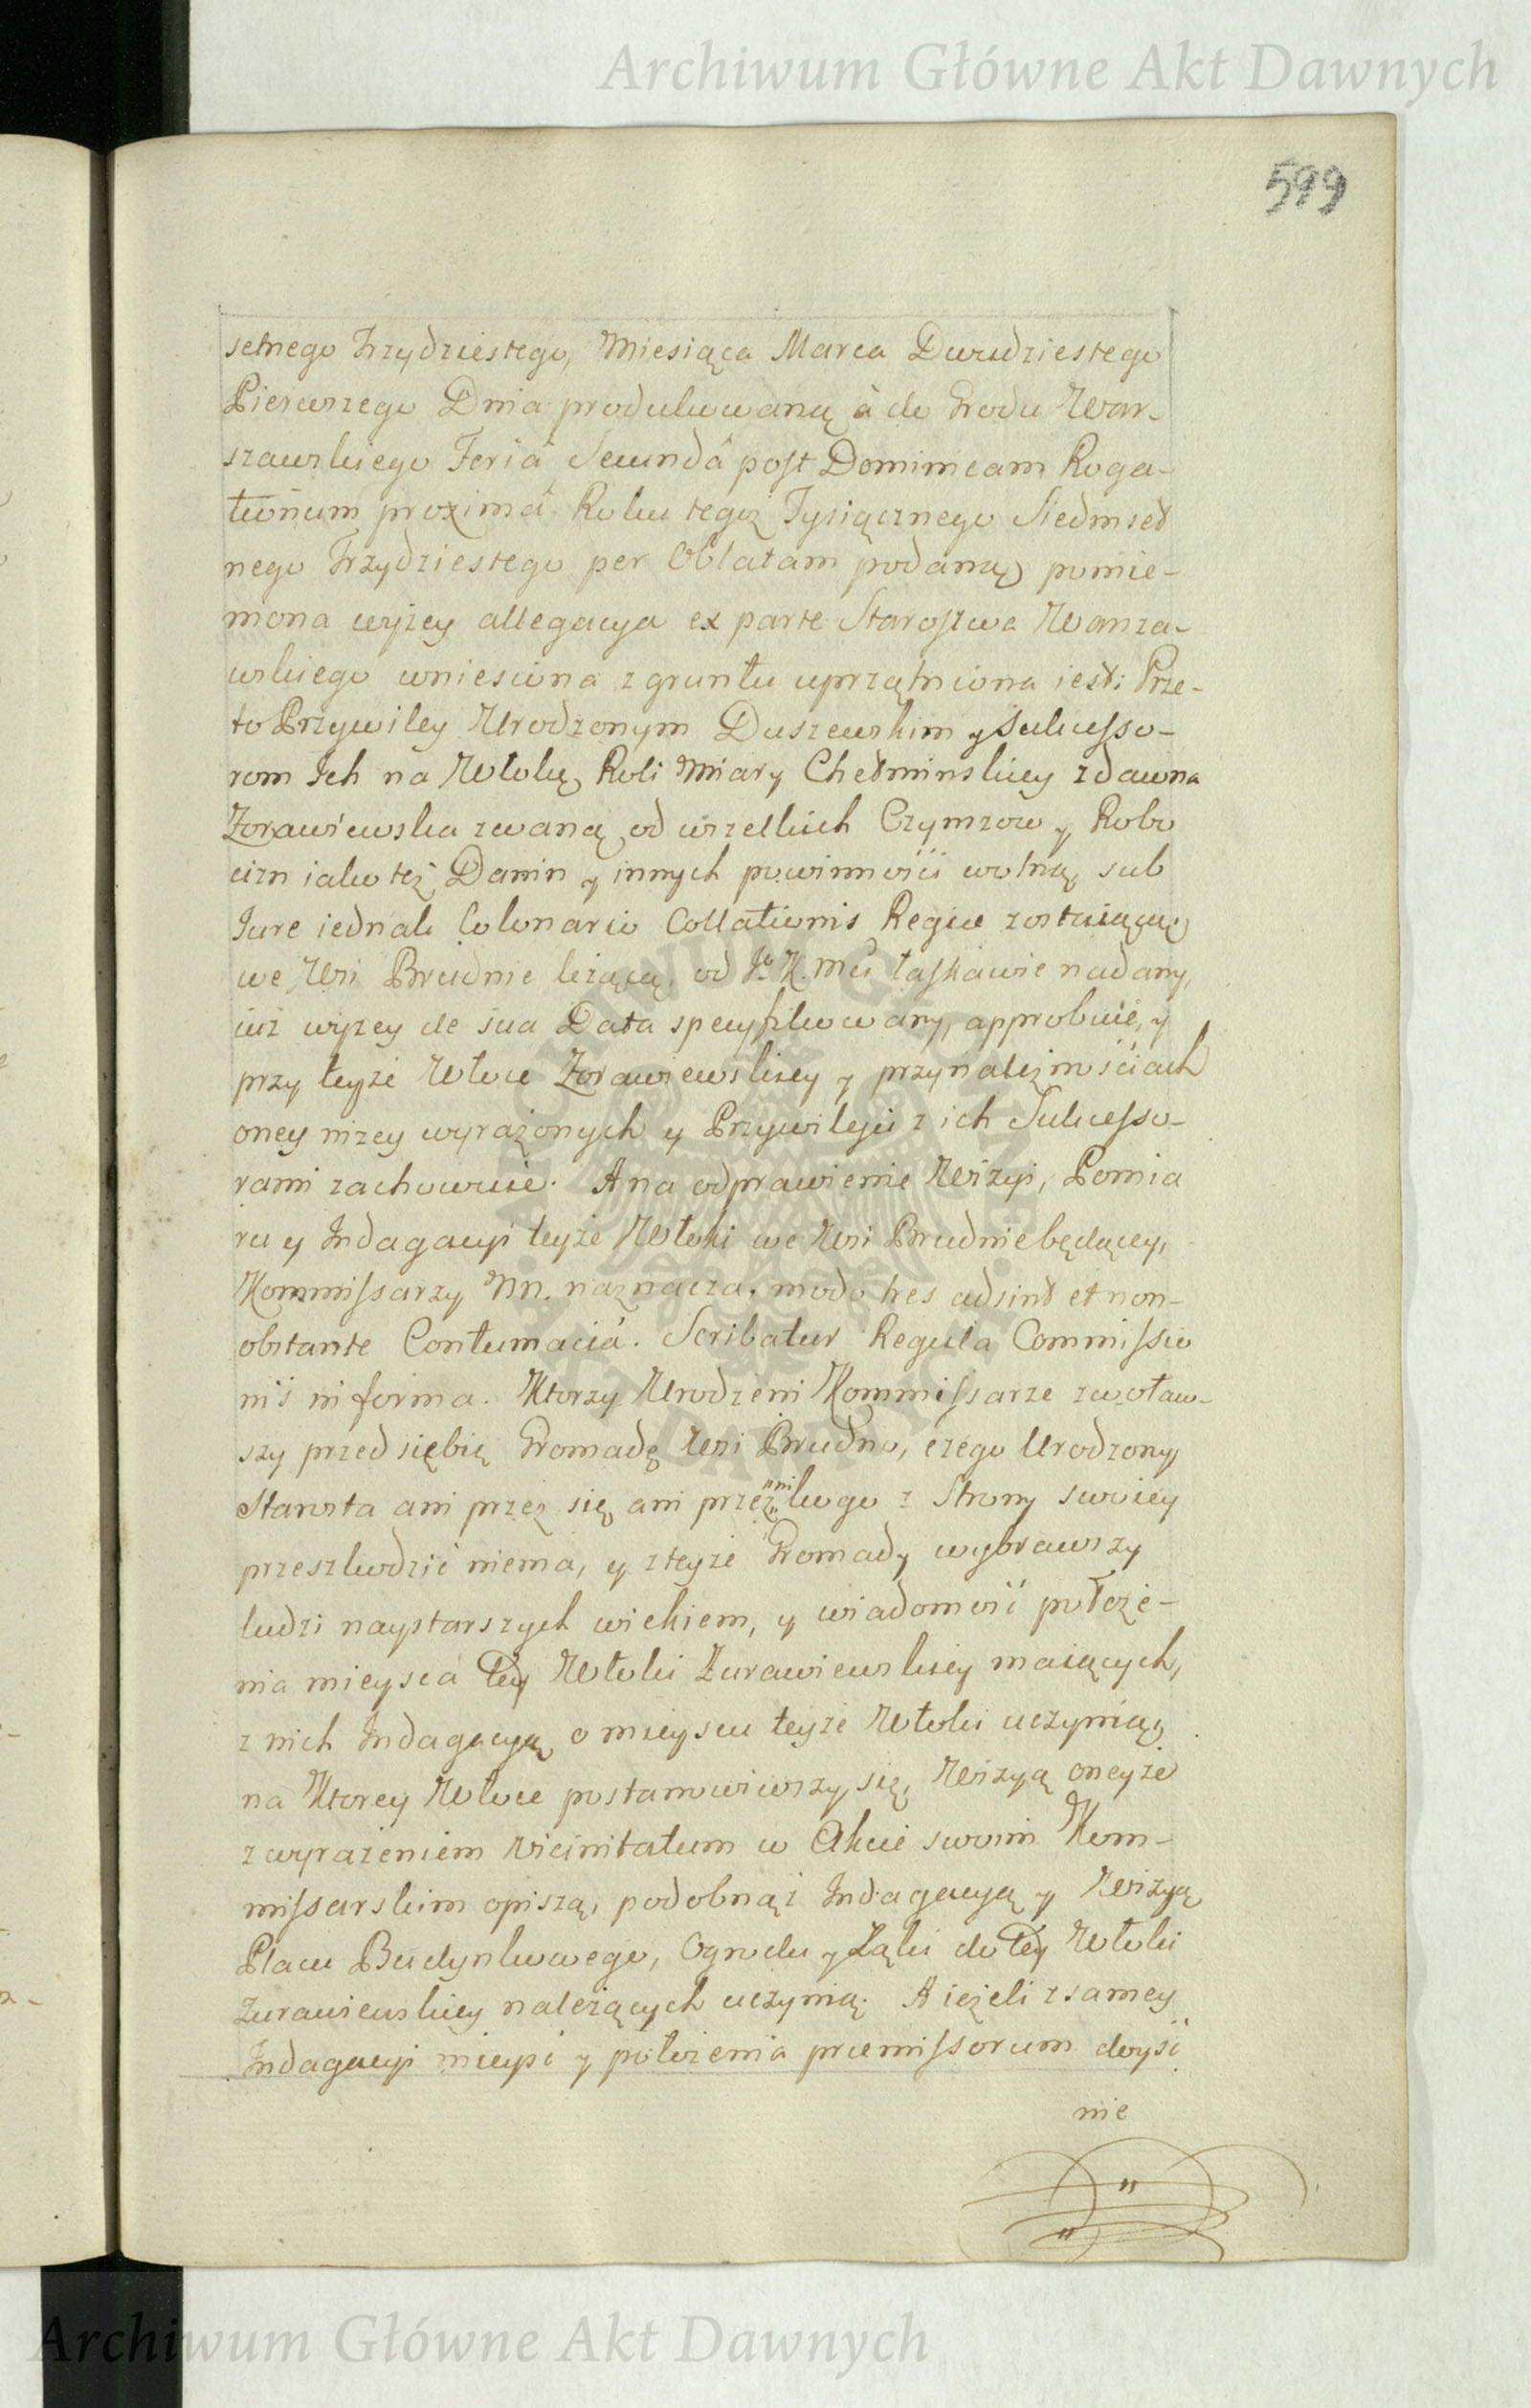 Archiwum Główne Akt Dawnych
599
setnego Trzydziestego, Miesiąca Marca Dwudziestego
Pierwszego Dnia produkowaną à do Grodu War-
szawskiego Feriâ Secundâ post Dominicam Roga-
tionum proximâ Roku tegoż Tysiącznego Siedmset
nego Trzydziestego per Oblatam podaną, pomie-
niona wyżey allegacya ex parte Starostwa Warsza-
wskiego wniesiona z gruntu uprzątniona iest; Prze-
to Przywiley Urodzonym Duszewskim y Sukcesso-
rom Ich na Włokę Roli Miary Chełminskiey zdawna
Zorawiewska zwaną od wszelkich Czynszow y Robo
cizn iako też Danin y innych powinności wolną sub
Iure iednak Colonario Collationis Regiæ zostaiącą,
we Wsi Brudnie leżącą, od Jo K. Mci łaskawie nadany,
iuż wyżey de sua Data specyfikowany, approbuie, y
przy teyże Włoce Zorawiewskiey y przynależnościach
oney niżey wyrażonych y Przywileju z ich Sukcesso-
rami zachowuie. A na odprawienie Wizyi, Pomia
ru y Indagacyi teyże Włoki we Wsi Brudnie będącey,
Kommissarzy Nn. naznacza, modo tres adsint et non-
obstante Contumaciâ. Scribatur Regula Commissio
nis in forma. Ktorzy Urodzeni Kommissarze zwoław-
szy przed siębię Gromadę Wsi Brudno, czego Urodzony
Starosta ani przez się ani przez nikogo z Strony swoiey
przeszkodzić niema, y z teyże Gromady wybrawszy
ludzi naystarszych wiekiem, y wiadomość położe-
nia mieysca tey Włoki Zurawiewskiey maiących,
z nich Indagacyą o mieyscu teyże Włoki uczynią,
na Ktorey Włoce postanowiwszy się, Wizyą oneyże
z wyrażeniem vicinitatum w Akcie swoim Kom-
missarskim opiszą, podobnąż Indagacyą y Wizyą
Placu Budynkowego, Ogrodu y Łąki do tey Włoki
Zurawiewskiey należących uczynią. A ieżeli z samey
Indagacyi mieysc y położenia præmissorum doyść
nie
Archiwum Główne Akt Dawnych